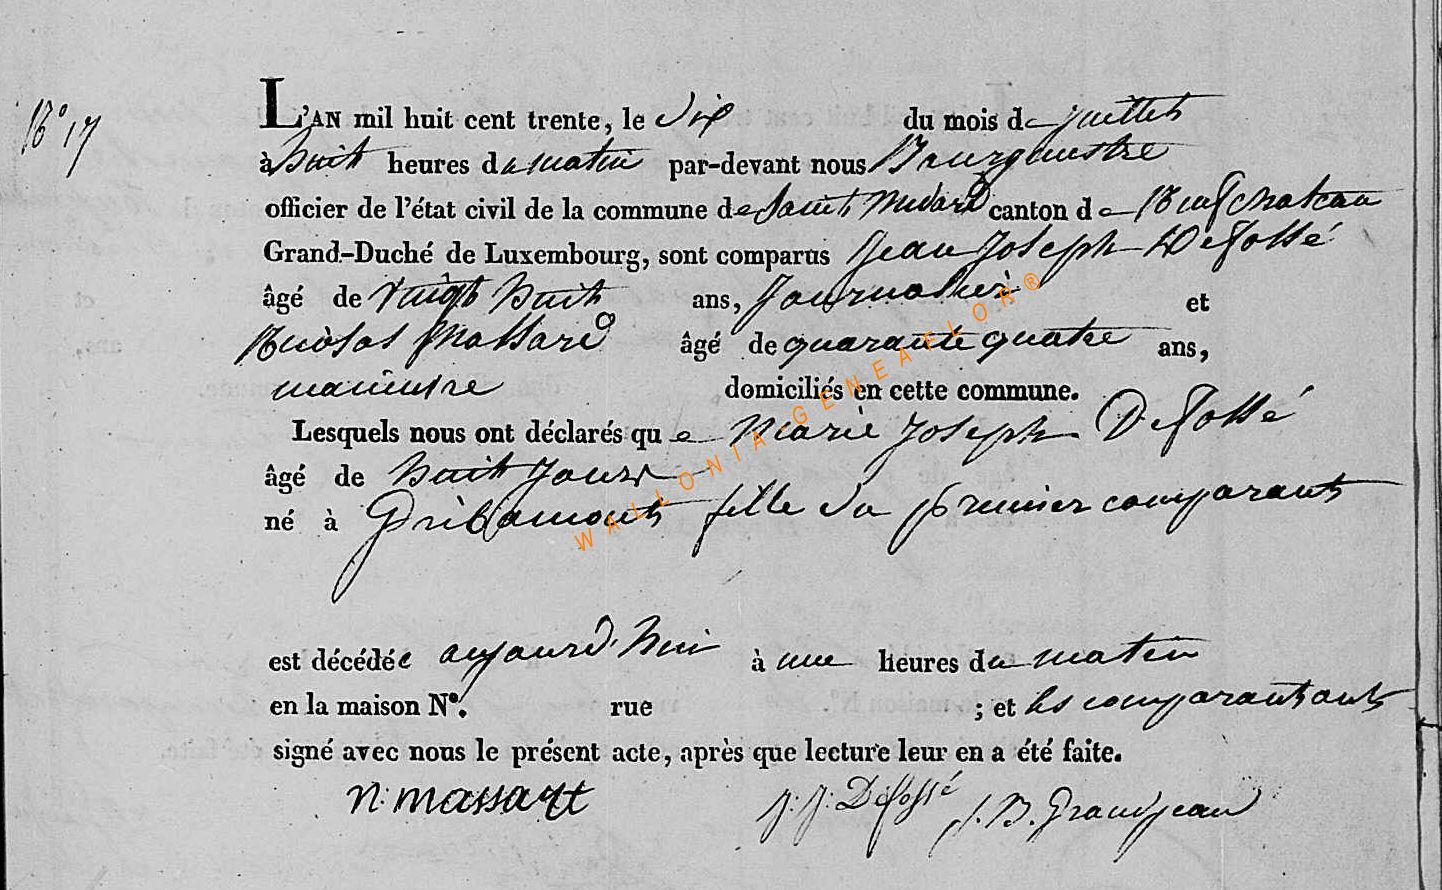 N° 17
L'AN mil huit cent trente, le dix du mois de juillet
à huit heures du matin par-devant nous Bourgmestre
officier de l'état civil de la commune de Saint Medard canton de Neufchateau
Grand-Duché de Luxembourg, sont comparus Jean Joseph Defossé
âgé de vingt huit ans, Journalier et
Nicolas Massard âgé de quarante quatre ans,
domiciliés en cette commune.
Lesquels nous ont déclarés que Marie Joseph Defossé
âgé de huit jours
né à Gribomont fille du premier comparant
est décédée aujourd'hui à une heures du matin
en la maison N°. rue ; et les comparants ont
signé avec nous le présent acte, après que lecture leur en a été faite.
n. massart J. J. Defossé J. B. Grandjean
WALLONIA GENEAFLOR®